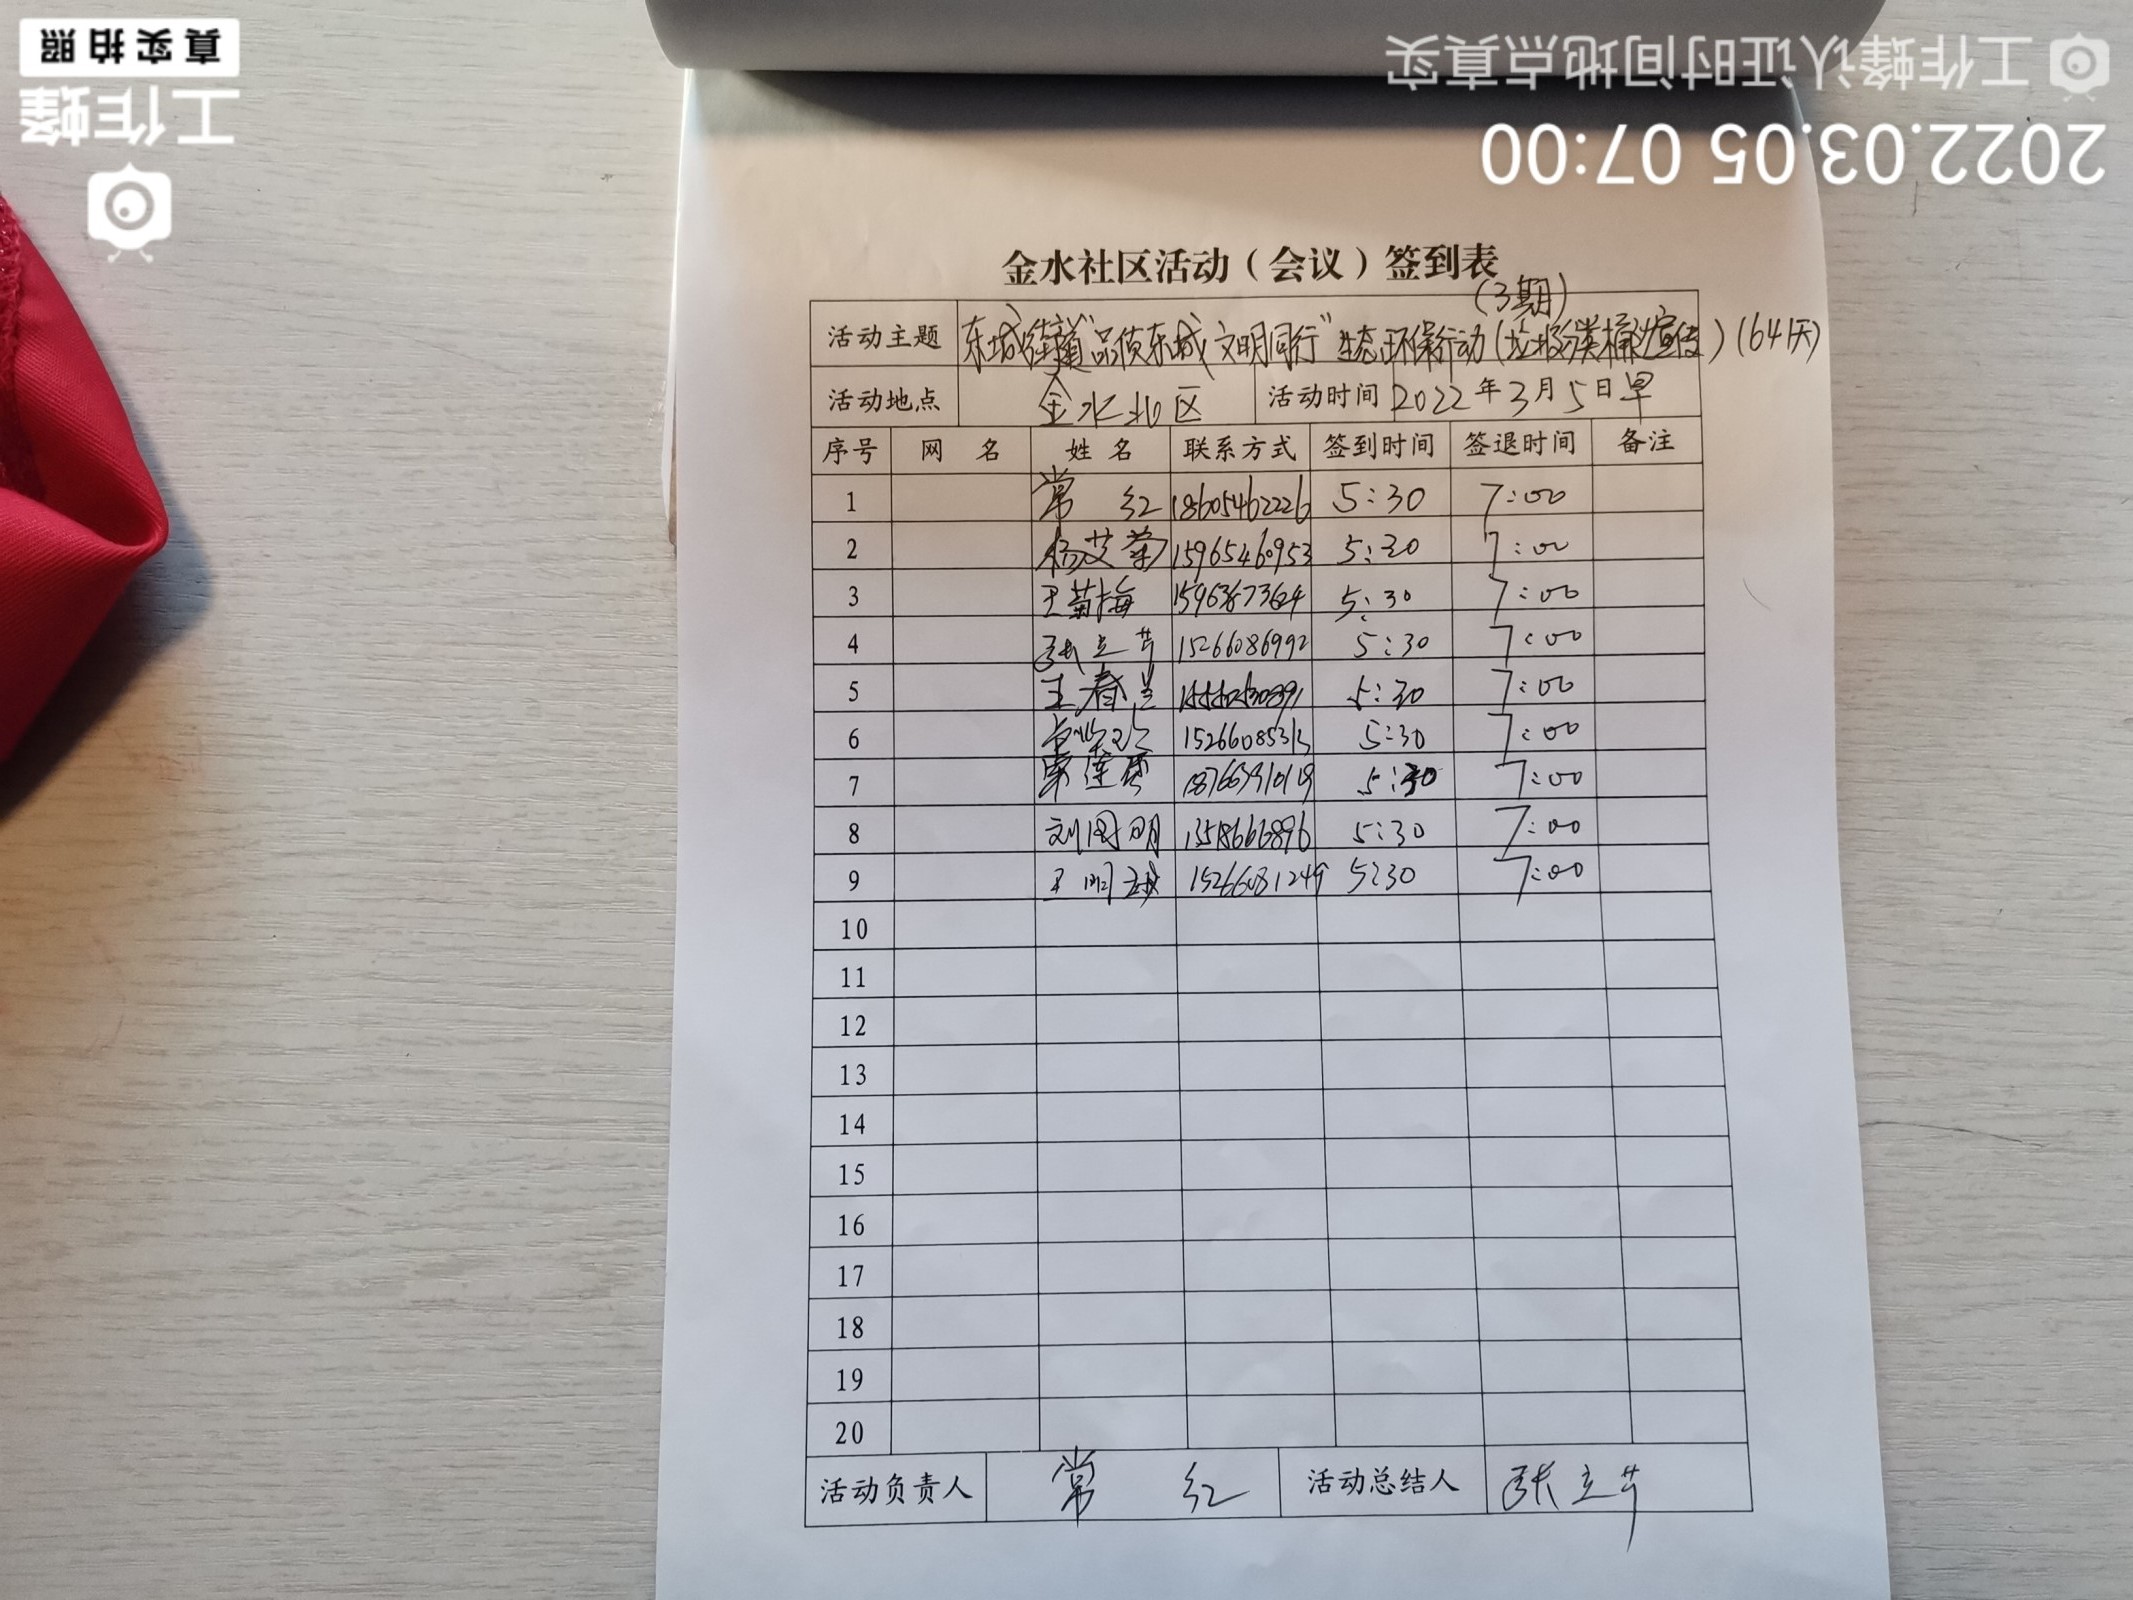 真实拍照
工作蜂
工作蜂认证时间地点真实
2022.03.05 07:00
金水社区活动（会议）签到表
(3期)
活动主题 东城街道"品质东城 文明同行"生态环保行动(垃圾分类桶边宣传)(64天)
活动地点 金水北区 活动时间 2022年3月5日早
序号 网 名 姓 名 联系方式 签到时间 签退时间 备注
1 常 红 18605462226 5:30 7:00
2 杨艾菊 15965460953 5:30 7:00
3 王菊梅 15963673624 5:30 7:00
4 张立芹 15266086992 5:30 7:00
5 王春兰 5:30 7:00
6 5:30 7:00
7 5:30 7:00
8 刘国明 5:30 7:00
9 王 15266081249 5:30 7:00
10
11
12
13
14
15
16
17
18
19
20
活动负责人 常 红 活动总结人 张立芹